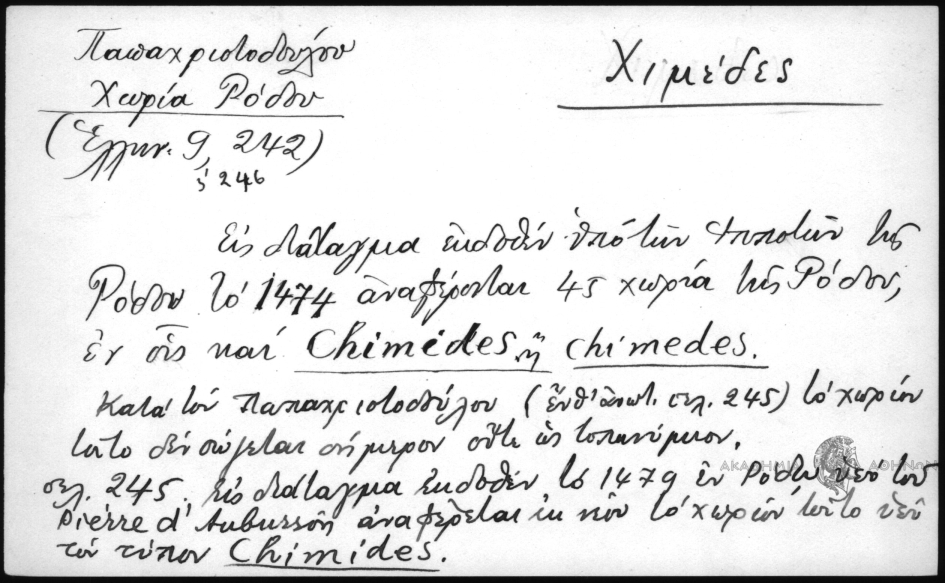 Παπαχριστοδούλου
Χωρία Ρόδου
(Ἑλλην. 9, 242)
ἑ 246
Χιμέδες
Εἰς διάταγμα ἐκδοθέν ὑπό τῶν Ἱπποτῶν τῆς
Ρόδου τό 1474 ἀναφέρονται 45 χωρία τῆς Ρόδου,
ἐν οἷς καί Chimedes ἤ chimedes.
Κατά τόν Παπαχριστοδούλου (ἔνθ' ἀνωτ. σελ. 245) τό χωρίον
τοῦτο δέν σώζεται σήμερον οὔτε ὡς τοπωνύμιον.
σελ. 245. Εἰς διάταγμα ἐκδοθέν τό 1479 ἐν Ρόδῳ ὑπό τοῦ
Pierre d' Aubusson ἀναφέρεται ἐκ νέου τό χωρίον τοῦτο ὑπό
τόν τύπον Chimides.
ΑΚΑΔΗΜΙΑ ΑΘΗΝΩΝ